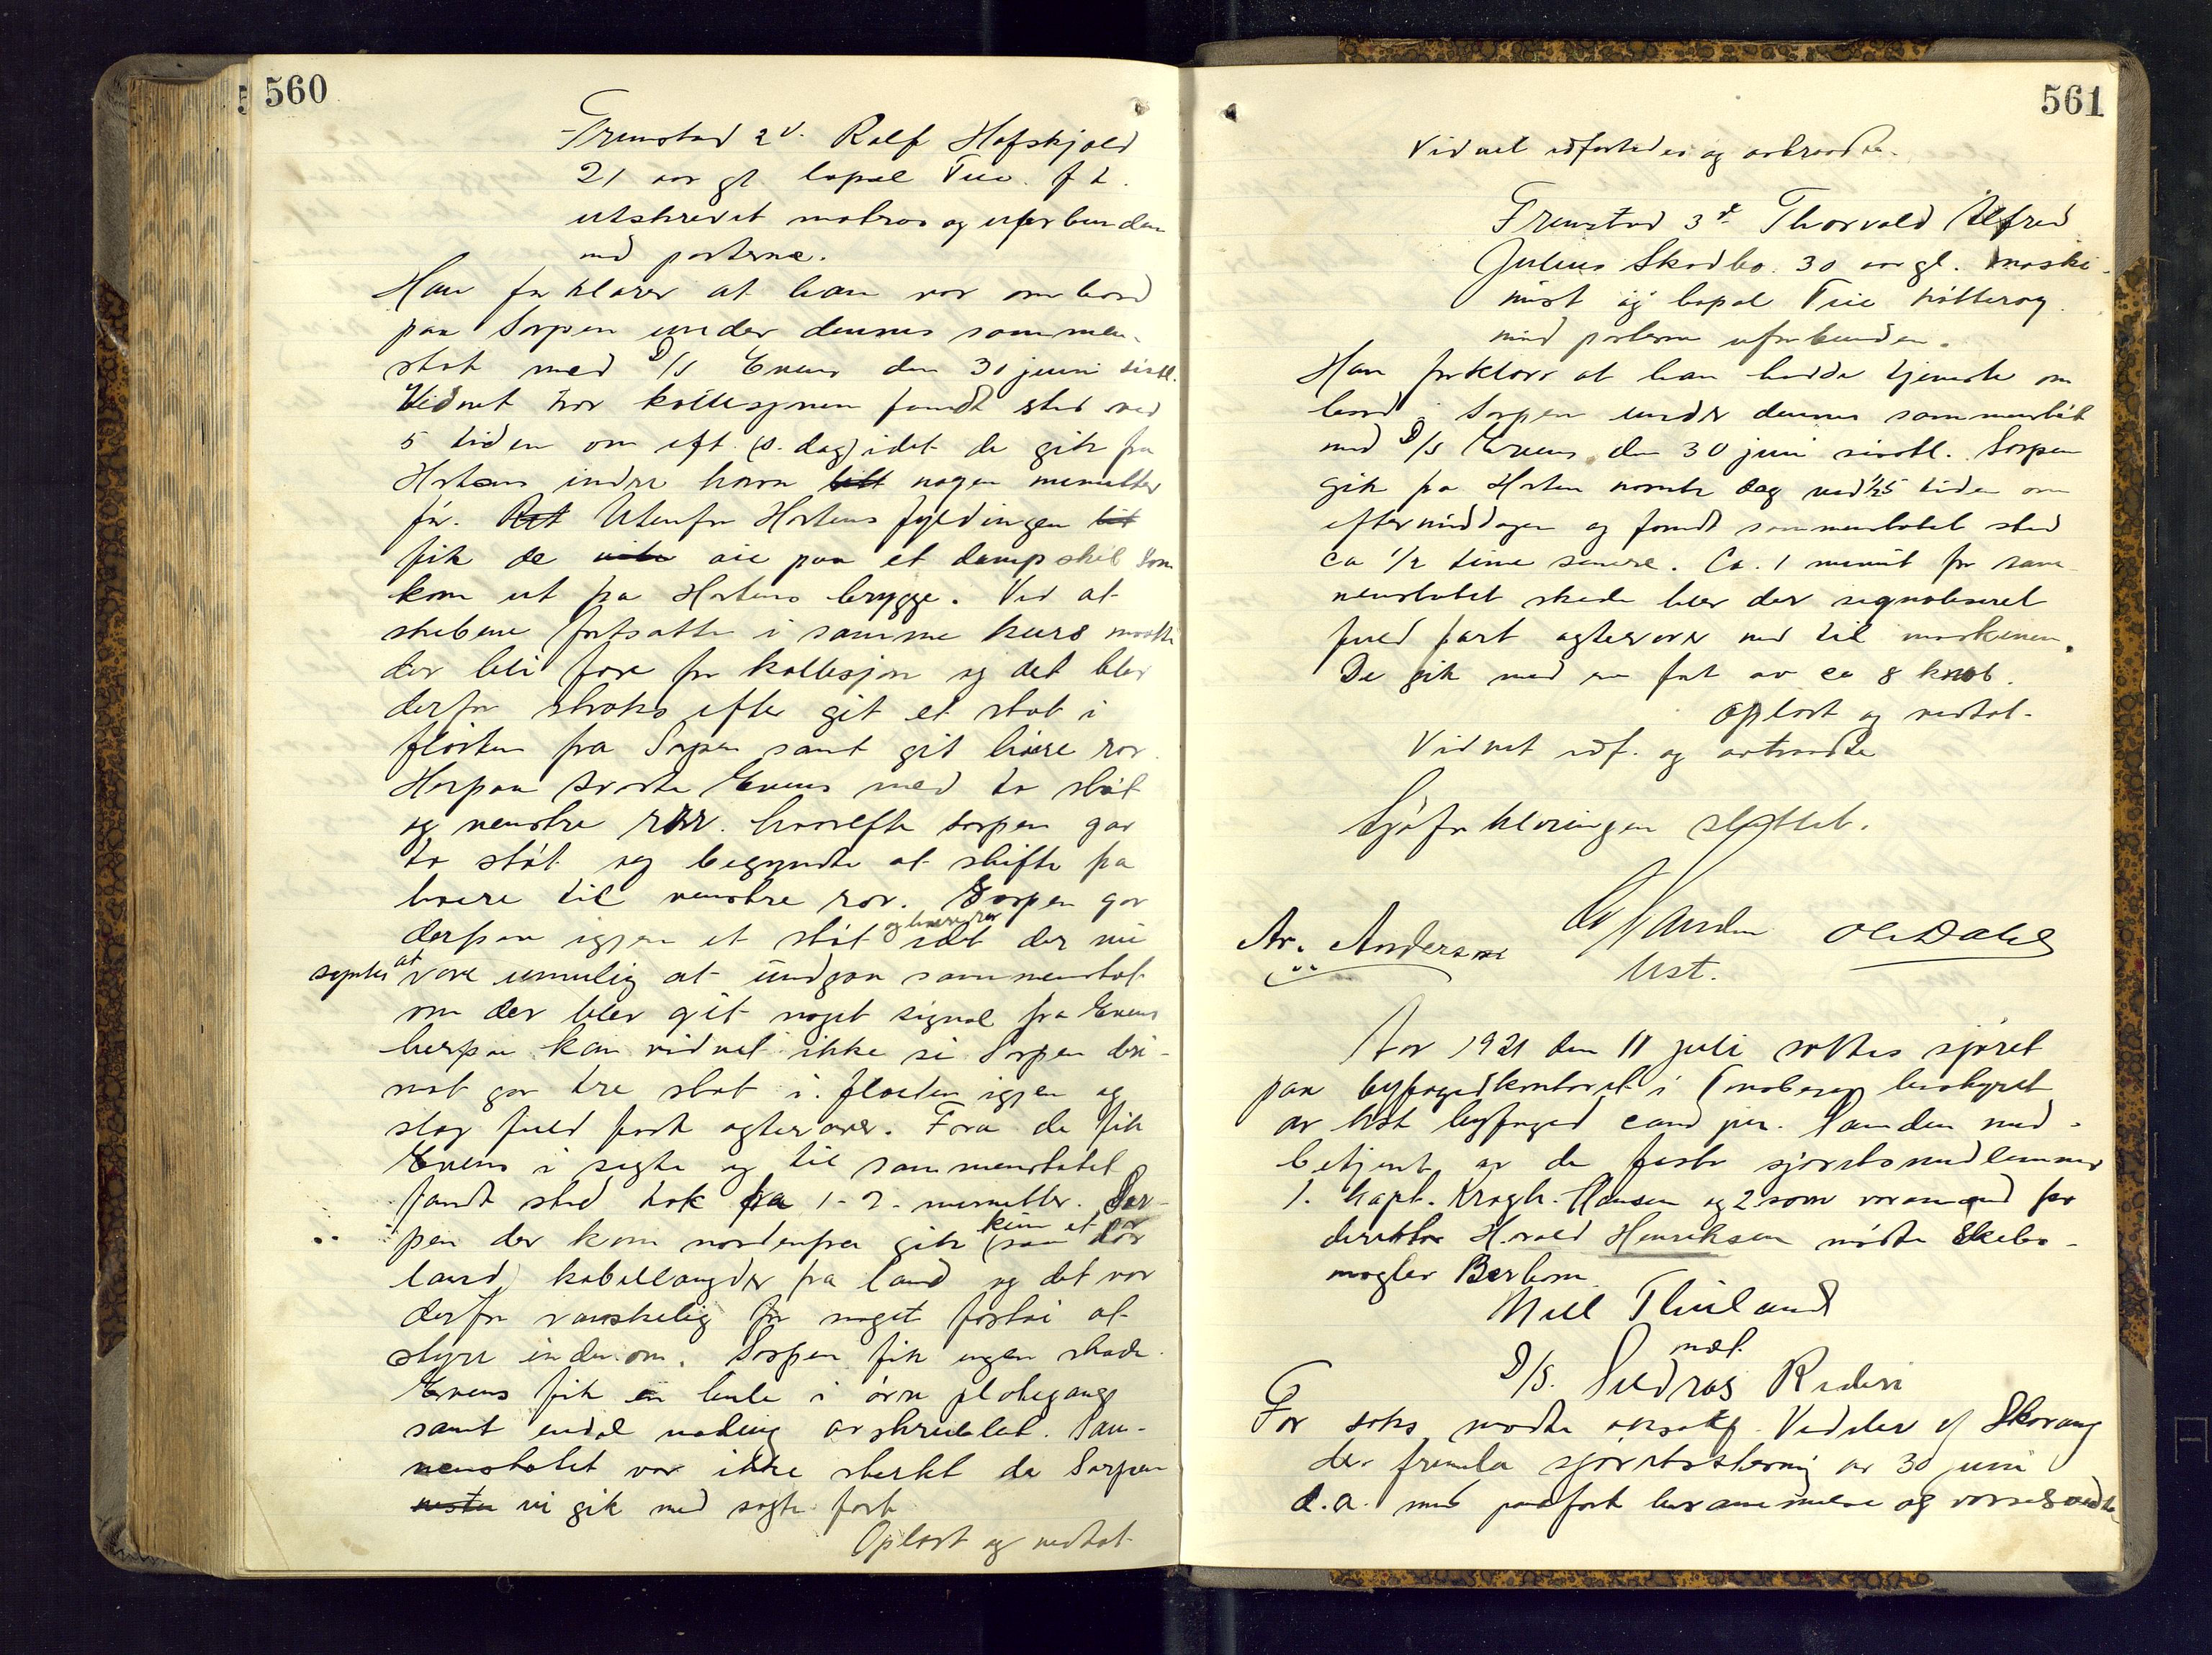 560
Fremstod 2 v. Rolf Hofskjold
21 aar gl bopæl Tue. f t.
utskrevet matros og uforbunden
md parterne.
Han forklarer at han var ombord
paa Sorpen under dennes sammen-
støt med D/S Evens den 30 juni sistl.
Vidnet tror kollisjonen fandt sted ved
5 tiden om eft. (s. dag) idet de gik fra
Hortens indre havn litt nogen minutter
før. Ret Utenfor Hortens fyldingen lit
fik de øie paa et dampskib som
kom ut fra Hortens brygge. Ved at
skibene fortsatte i samme kurs maatte
der bli fare for kollisjon og det blev
derfor straks efter git et støt i
fløiten fra Sorpen samt git høire ror.
Herpaa svarte Evens med to støt
og venstre ror. hvorefter Sorpen gav
to støt og begyndte at skifte fra
høire til venstre ror. Sorpen gav
derpaa igjen et støt og høire ror idet der nu
syntes at være umulig at undgaa sammenstøt
om der blev git noget signal fra Evens
herpaa kan vidnet ikke si Sorpen der-
mot gav tre støt i fløiten igjen og
slog fuld fart agterover. Fra de fik
Evens i sigte og til sammenstøtet
fandt sted tok fra 1-2 minutter. Sor-
pen der kom nordenfra gik kun et par
land) kabellængder fra land og det var
derfor vanskelig for noget fartøi at
styre indenom. Sorpen fik ingen skade.
Evens fik en bule i øvre plategang
samt endel maling avskrubbet. Sam-
menstøtet var ikke sterkt da Sorpen
vi gik med sagte fart
Oplæst og vedtat
561
Vidnet edfæstedes og avtraadte.
Fremstod 3d Thorvald Alfred
Julius Skodbo. 30 aar gl. maski-
nist og bopæl Tue
med parterne uforbunden.
Han forklarer at han hadde tjeneste om
bord i Sorpen under dennes sammenstøt
med D/S Evens den 30 juni sisstl. Sorpen
gik fra Horten nævnte dag ved 1/2 5 tiden om
eftermiddagen og fandt sammenstøtet sted
ca 1/2 time senere. Ca. 1 minut før sam-
menstøtet skede blev der signaliseret
fuld fart agterover ned til maskinen.
De gik med en fart av ca 8 knob.
Oplæst og vedtat.
Vidnet edf. og avtraadte
Sjøforklaringen sluttet.
Ar. Anderssen Sanden Ole Dahl
Kst.
Aar 1921 den 11 juli sattes sjøret
paa byfogedkontoret i Tønsberg bestyret
av kst byfoged cand jur. Sanden med-
betjent av de faste sjøretsmedlemmer
1. kapt. Krogh-Hansen og 2 som varamand for
direktør Harald Henriksen møtte Skibs-
mægler Berhom
Niel Thiland
mot
D/S. Sildras Rederi
For saks. møtte orsakf. Vedeler
der fremla sjøretsstevning av 30 juni
d.a. med paaført berammelse og varselsvedta